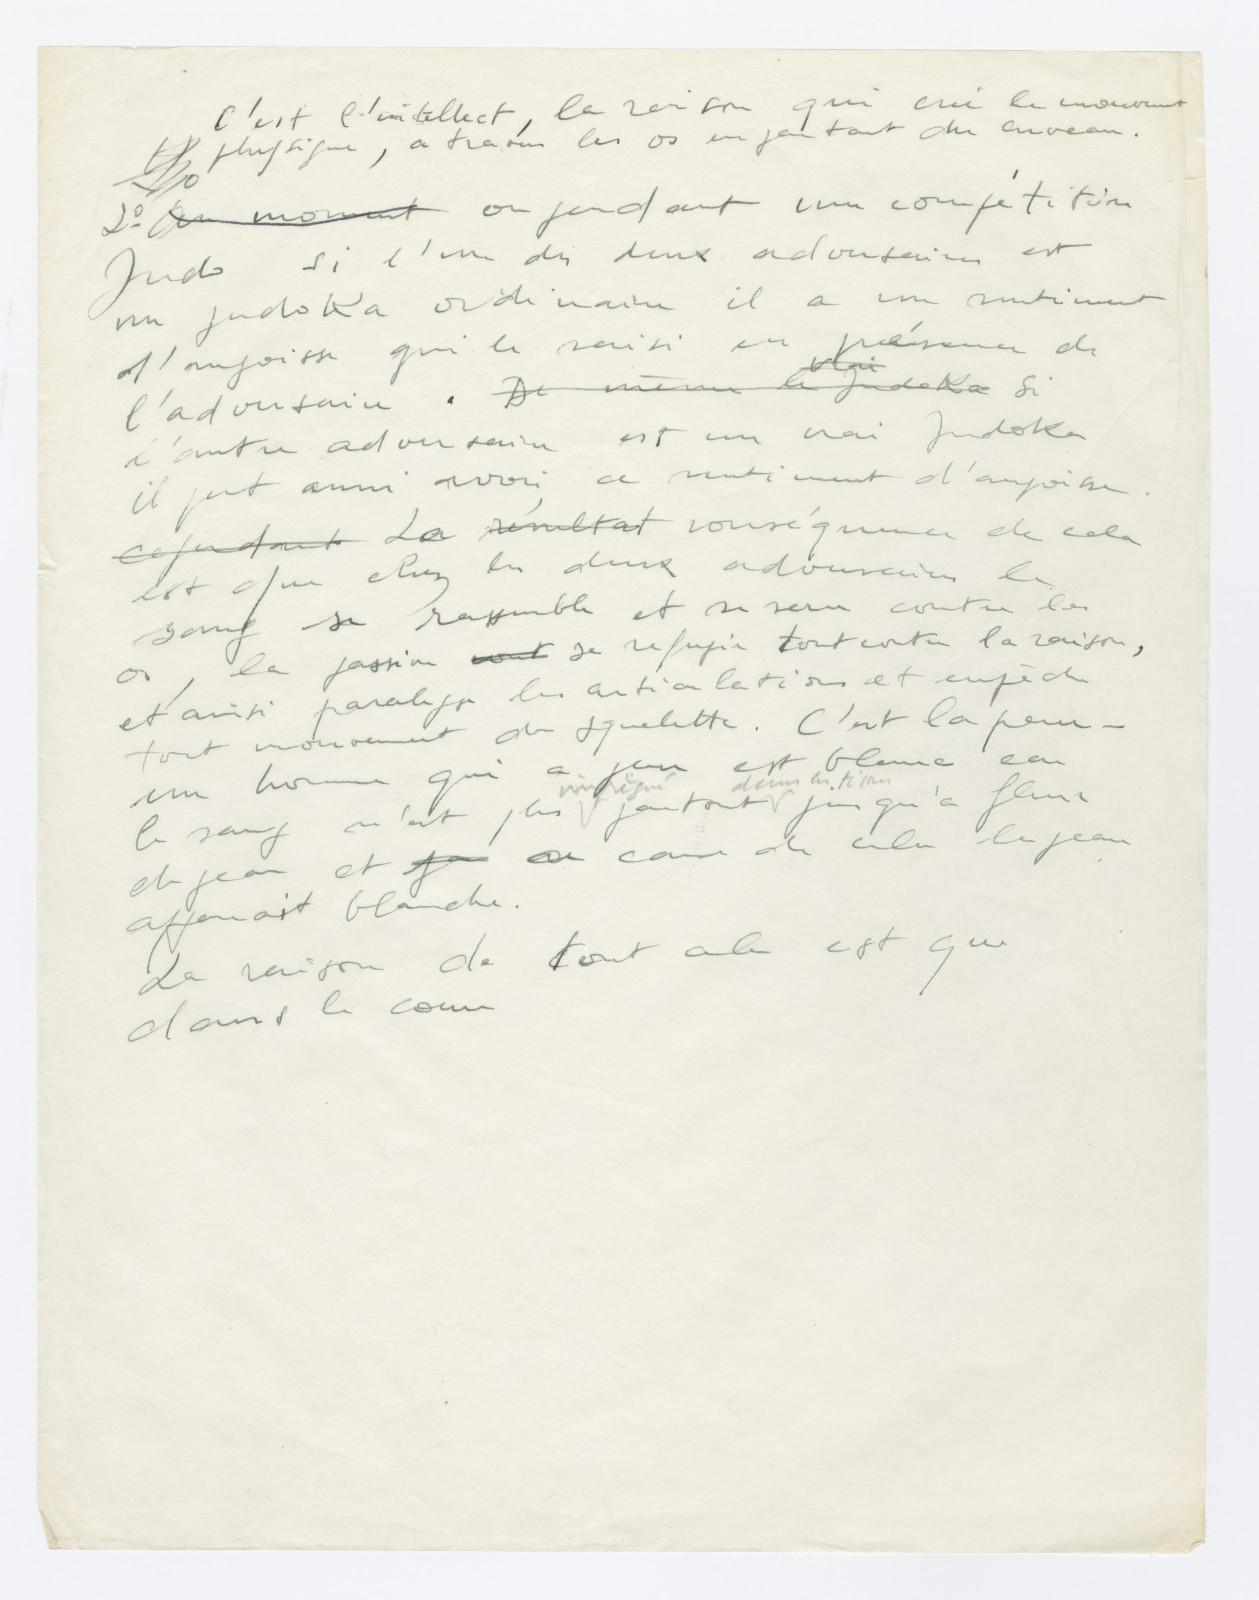 C'est l'intellect, la raison qui créé le mouvement
physique, à travers les os en partant du cerveau.
2° Au moment on pendant une compétition
Judo si l'un des deux adversaires est
un judoka ordinaire il a un sentiment
d'angoisse qui le saisi en présence de
vrai
l'adversaire. De même le Judoka Si
l'autre adversaire est un vrai Judoka
il peut aussi avoir ce sentiment d'angoisse.
cependant La résultat conséquence de cela
est que chez les deux adversaires le
sang se rassemble et se serre contre les
os, la passion vont se refugie tout contre la raison,
et ainsi paralyse les articulations et empêche
tout mouvement du squelette. C'est la peur –
un homme qui a peur est blanc car
dans les tissus
le sang n'est plus partout jusqu'à fleur
de peau et cause de cela la peau
apparait blanche.
La raison de tout cela est que
dans le cœur